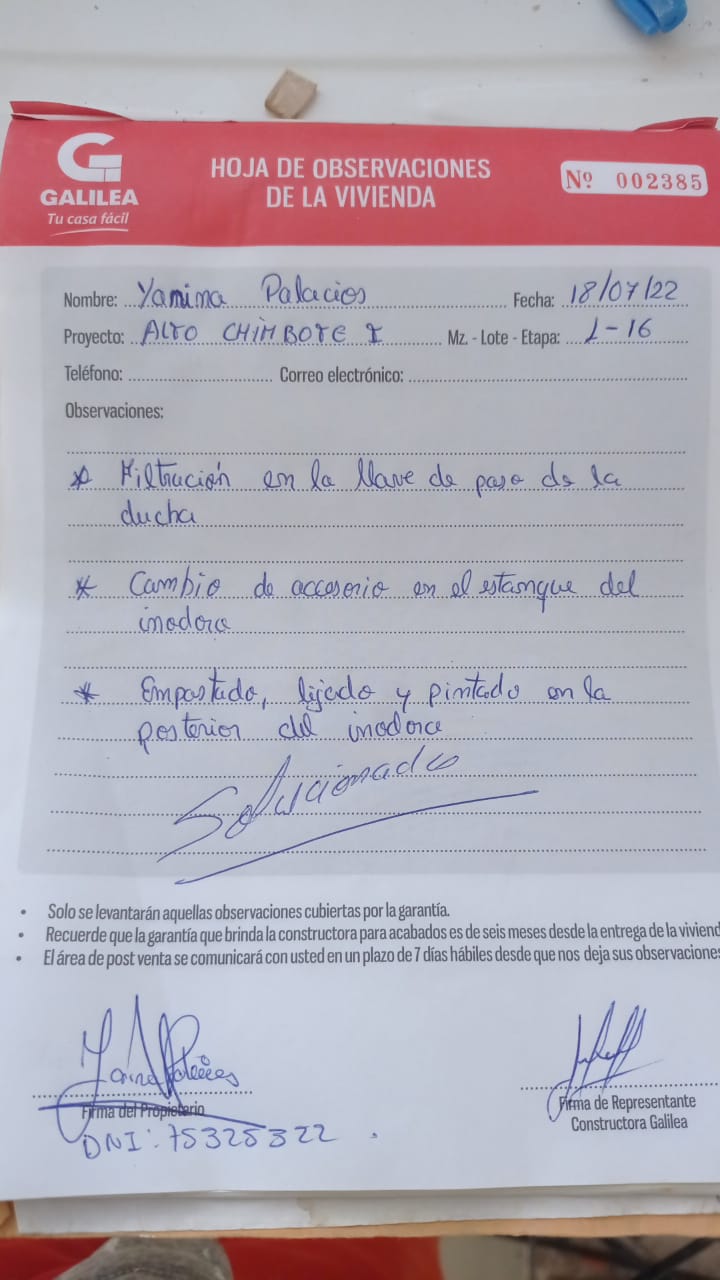 GALILEA
Tu casa fácil
HOJA DE OBSERVACIONES
DE LA VIVIENDA
Nº 002385
Nombre: Yanina Palacios Fecha: 18/07/22
Proyecto: ALTO CHIMBOTE I Mz. - Lote - Etapa: L-16
Teléfono: Correo electrónico:
Observaciones:
* Filtración en la llave de paso de la
ducha
* Cambio de accesorio en el estanque del
inodoro
* Empastado, lijado y pintado en la
posterior del inodoro
Solucionado
• Solo se levantarán aquellas observaciones cubiertas por la garantía.
• Recuerde que la garantía que brinda la constructora para acabados es de seis meses desde la entrega de la viviend
• El área de post venta se comunicará con usted en un plazo de 7 días hábiles desde que nos deja sus observaciones
Firma del Propietario
DNI: 75325322
Firma de Representante
Constructora Galilea